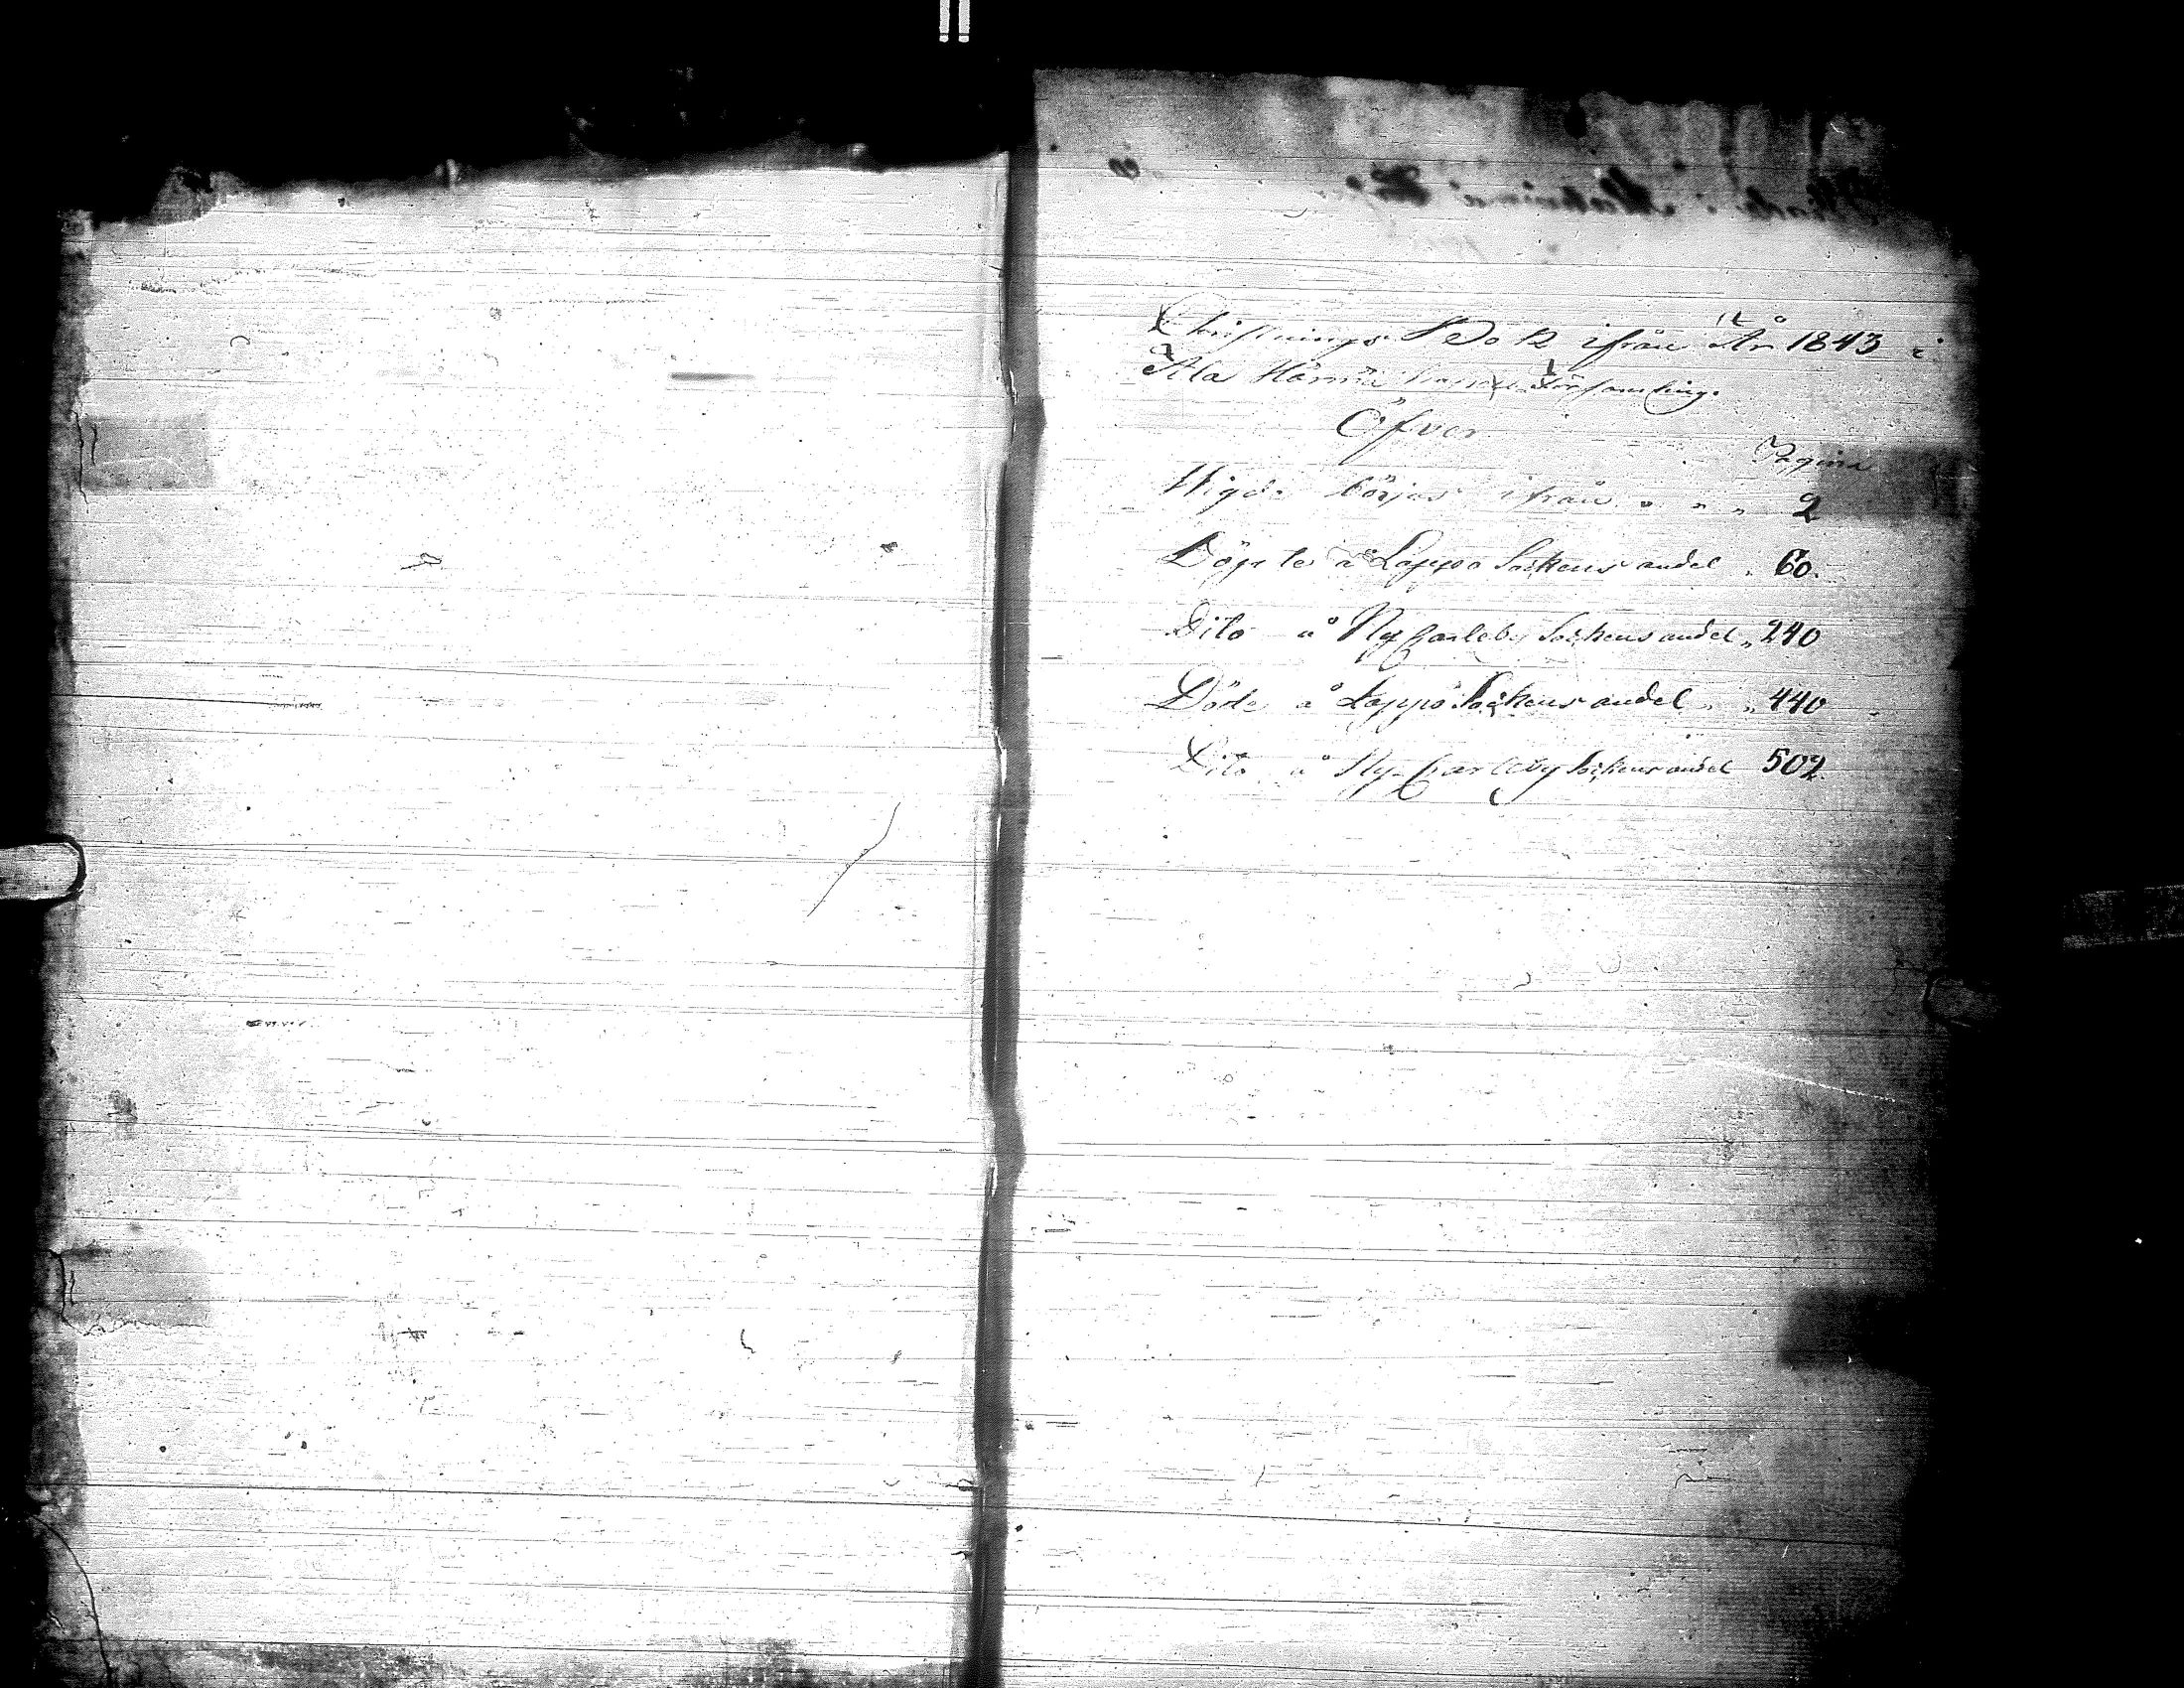 Skriftnings Bok ifrån År 1843 i
Ala Härmä Församling.
Öfver
Pagina
Wigde börjas ifrån " " " 2
Döpte å Lappo Sockens andel " 60.
Dito å Ny Carleby Sockens andel " 240
Döde å Lappo Sockens andel " " 440
Dito å Ny Carleby Sockens andel 502.